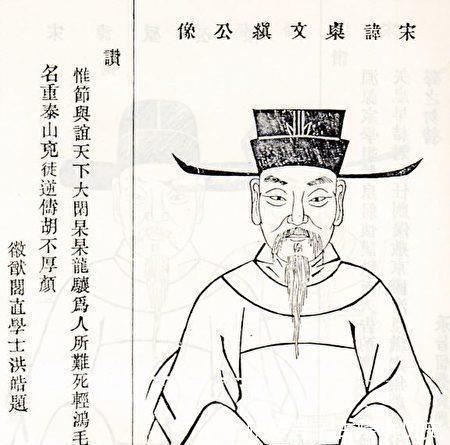 宋諱㮚文縝公像
讚
惟節與誼天下大閑杲杲龍驤爲人所難死輕鴻毛
名重泰山兇徒逆儔胡不厚顏
徽猷閣直學士洪皓題